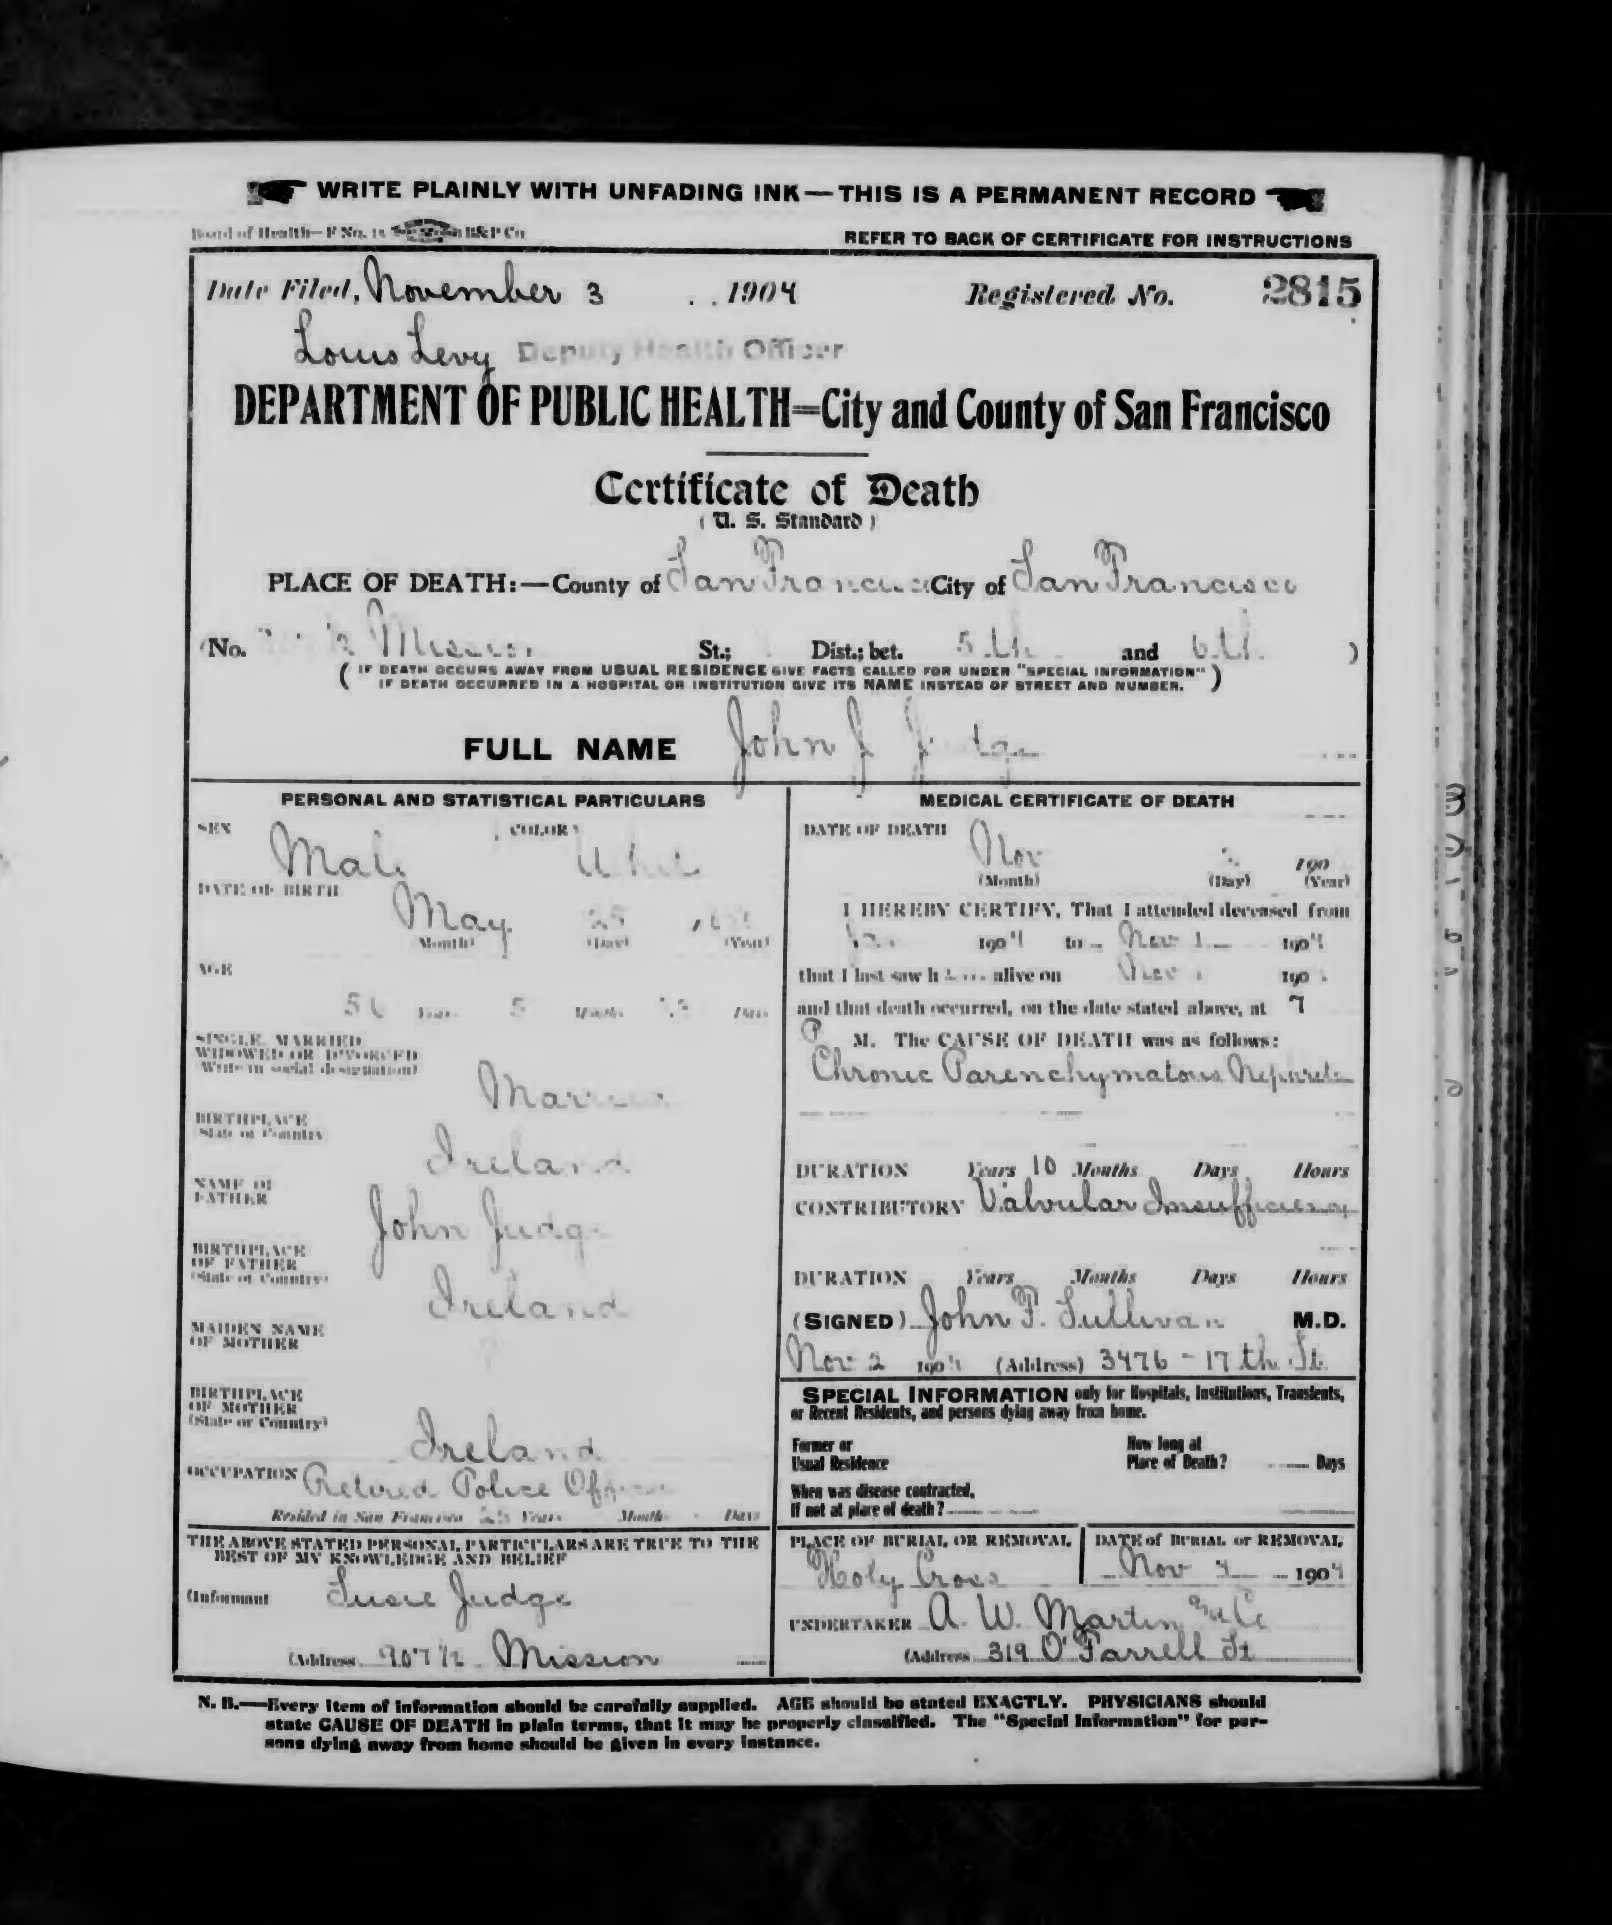 WRITE PLAINLY WITH UNFADING INK—THIS IS A PERMANENT RECORD
Board of Health—F No. 15 B&P Co
REFER TO BACK OF CERTIFICATE FOR INSTRUCTIONS
Date Filed, November 3 1904 Registered No. 2815
Louis Levy Deputy Health Officer
DEPARTMENT OF PUBLIC HEALTH=City and County of San Francisco
Certificate of Death
(U. S. Standard)
PLACE OF DEATH:—County of San Francisco City of San Francisco
(No. Mission St.; Dist.; bet. 5th and 6th )
(IF DEATH OCCURS AWAY FROM USUAL RESIDENCE GIVE FACTS CALLED FOR UNDER "SPECIAL INFORMATION"
IF DEATH OCCURRED IN A HOSPITAL OR INSTITUTION GIVE ITS NAME INSTEAD OF STREET AND NUMBER.)
FULL NAME John J Judge
PERSONAL AND STATISTICAL PARTICULARS
SEX Male COLOR White
DATE OF BIRTH May 25
(Month) (Day) (Year)
AGE
5 Years 5 Months Days
SINGLE, MARRIED
WIDOWED OR DIVORCED
(Write in social designation)
Married
BIRTHPLACE
(State or Country)
Ireland
NAME OF
FATHER
John Judge
BIRTHPLACE
OF FATHER
(State or Country)
Ireland
MAIDEN NAME
OF MOTHER
BIRTHPLACE
OF MOTHER
(State or Country)
Ireland
OCCUPATION Retired Police Officer
Resided in San Francisco 25 Years Months Days
THE ABOVE STATED PERSONAL PARTICULARS ARE TRUE TO THE
BEST OF MY KNOWLEDGE AND BELIEF
(Informant Susie Judge
(Address 907 1/2 Mission
MEDICAL CERTIFICATE OF DEATH
DATE OF DEATH
Nov 190
(Month) (Day) (Year)
I HEREBY CERTIFY, That I attended deceased from
Jan 1904 to Nov 1 1904
that I last saw h alive on Nov 190
and that death occurred, on the date stated above, at 7
P M. The CAUSE OF DEATH was as follows:
Chronic Parenchymatous Nephritis
DURATION Years 10 Months Days Hours
CONTRIBUTORY Valvular Insufficiency
DURATION Years Months Days Hours
(SIGNED) John F. Sullivan M.D.
Nov 2 1904 (Address) 3476 - 17th St.
SPECIAL INFORMATION only for Hospitals, Institutions, Transients,
or Recent Residents, and persons dying away from home.
Former or
Usual Residence
How long at
Place of Death? Days
When was disease contracted,
If not at place of death?
PLACE OF BURIAL OR REMOVAL
Holy Cross
DATE of BURIAL or REMOVAL
Nov 4 1904
UNDERTAKER A. W. Martin & Co
(Address 319 O'Farrell St
N. B.—Every item of information should be carefully supplied. AGE should be stated EXACTLY. PHYSICIANS should
state CAUSE OF DEATH in plain terms, that it may be properly classified. The "Special Information" for per-
sons dying away from home should be given in every instance.